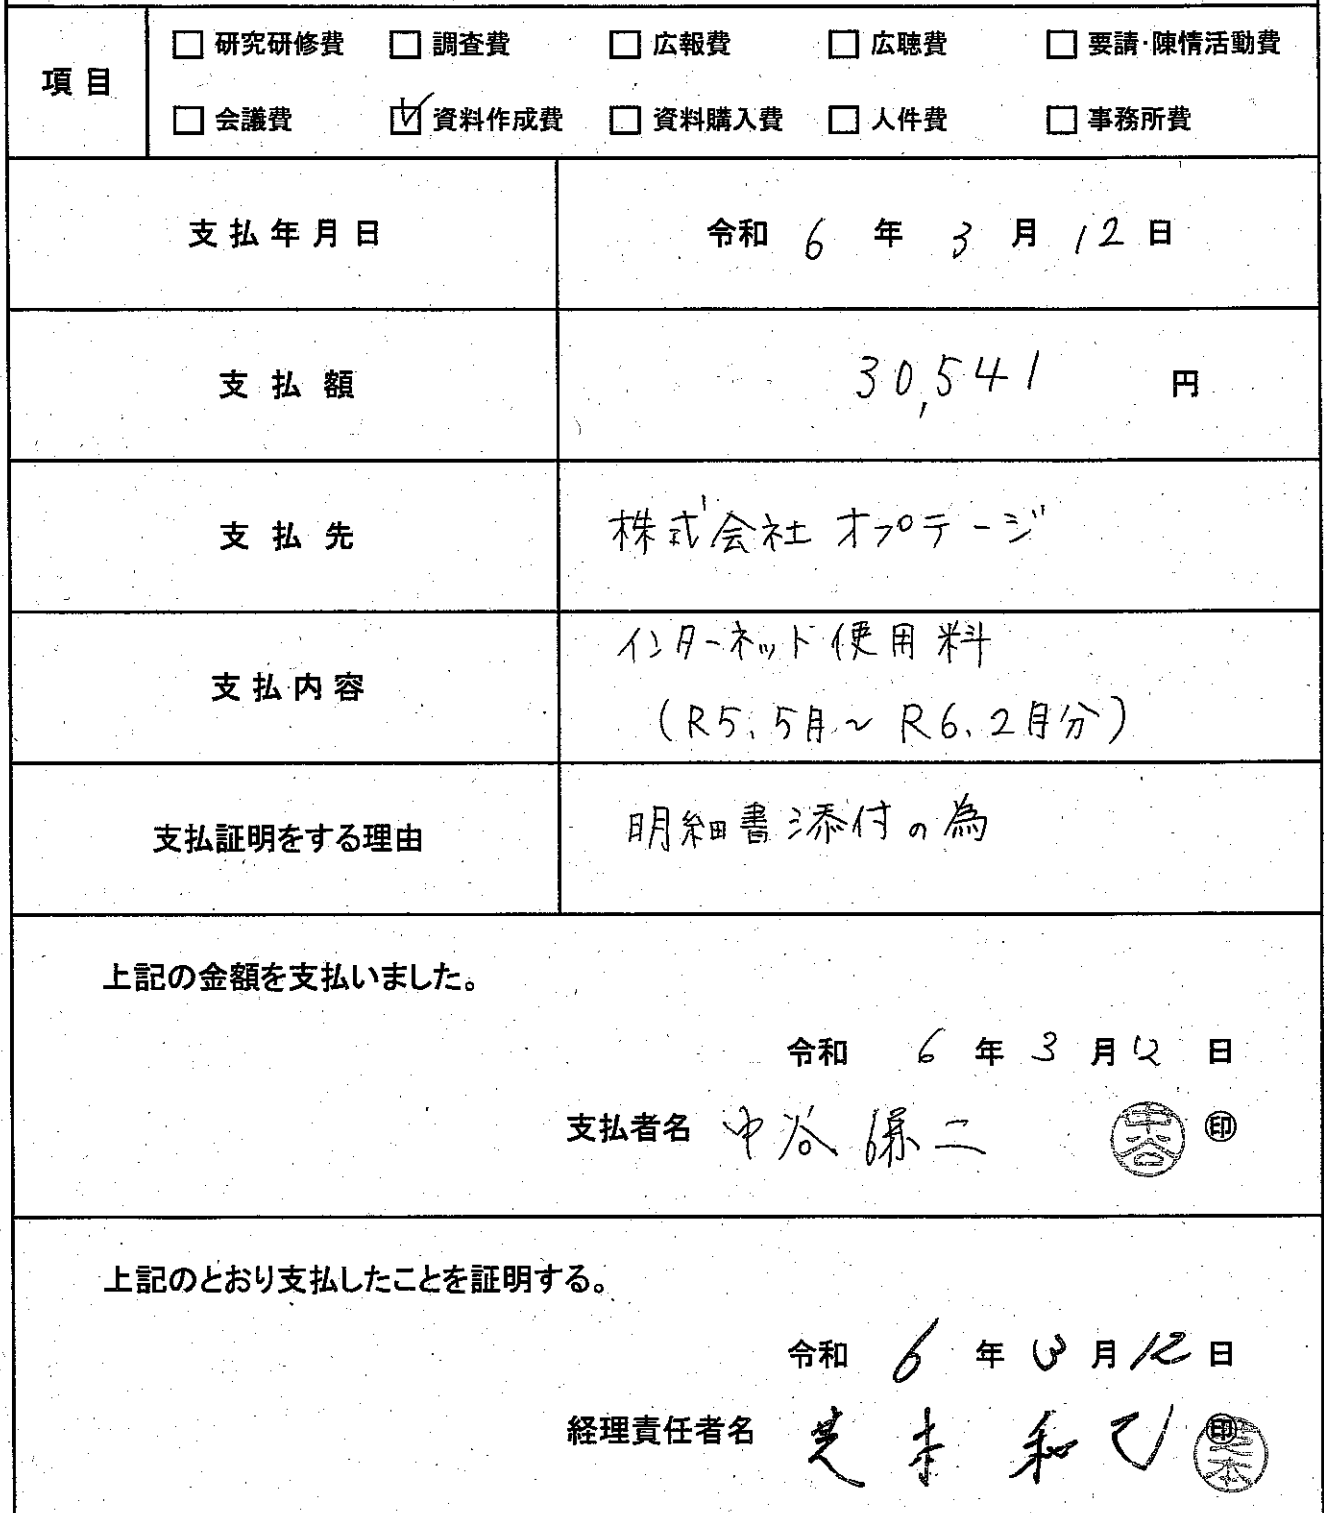 項目
□ 研究研修費 □ 調査費 □ 広報費 □ 広聴費 □ 要請・陳情活動費
□ 会議費 ☑ 資料作成費 □ 資料購入費 □ 人件費 □ 事務所費
支払年月日 令和 6 年 3 月 12 日
支払額 30,541 円
支払先 株式会社 オプテージ
支払内容 インターネット使用料
(R5.5月～R6.2月分)
支払証明をする理由 明細書添付の為
上記の金額を支払いました。
令和 6 年 3 月 12 日
支払者名 中谷 保二 中谷 ㊞
上記のとおり支払したことを証明する。
令和 6 年 3 月 12 日
経理責任者名 芝本 和己 ㊞ 芝本